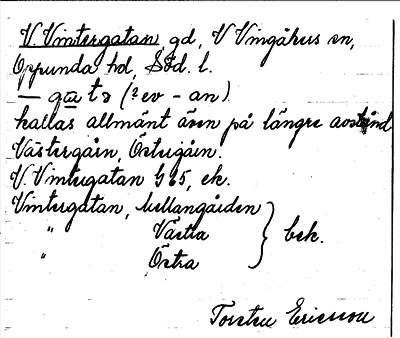 V. Vintergatan, gd, V Vingåkers sn,
Oppunda hd, Söd. l.
— gatə (? ev - an)
kallas allmänt även på längre avstånd
Västergårn, Östergårn.
V. Vintergatan G 65, ek.
Vintergatan, Mellangården
" Västra } bek.
" Östra
Torsten Ericsson